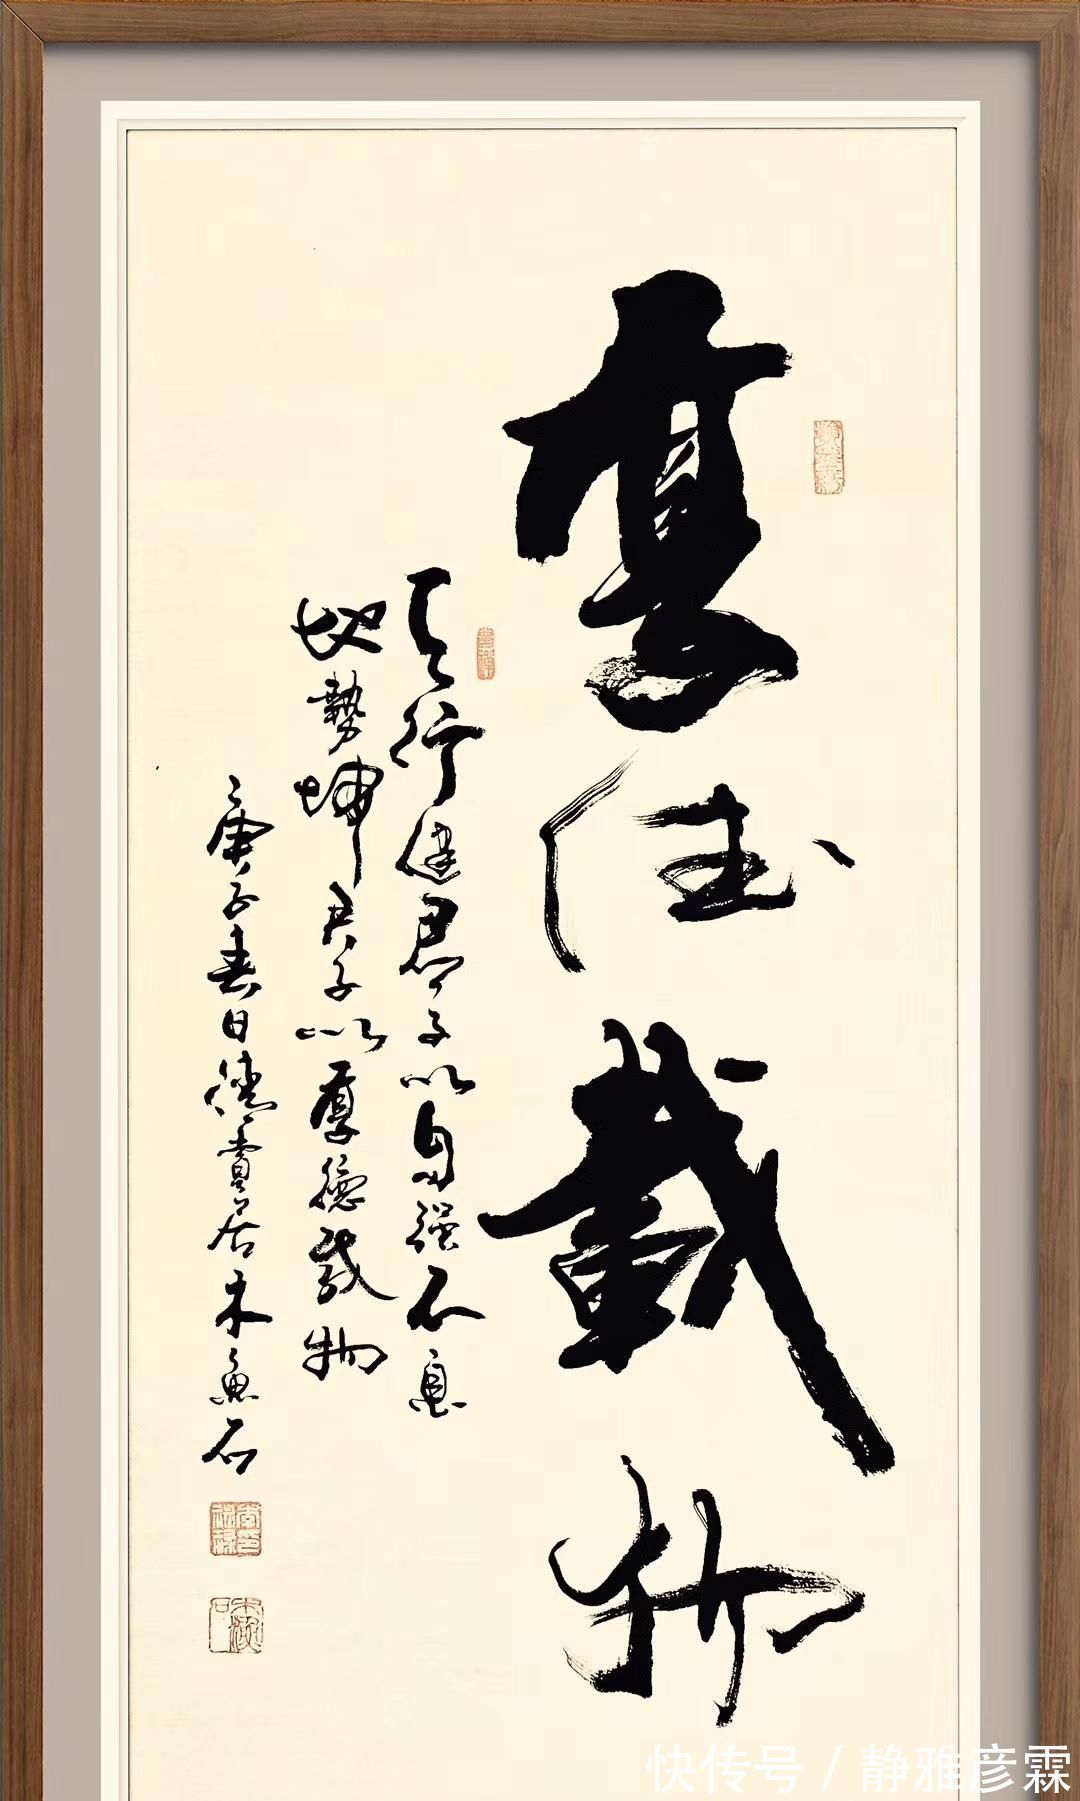 厚德载物
天行健君子以自强不息
地势坤君子以厚德载物
庚子春日德贵居木鱼石
快传号/静雅彦霖